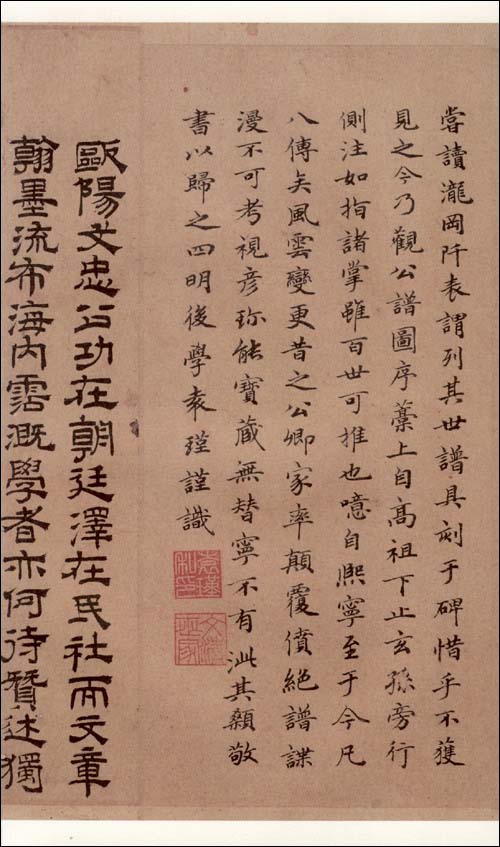 嘗讀瀧岡阡表謂列其世譜具刻于碑惜乎不獲
見之今乃觀公譜圖序藁上自高祖下止玄孫旁行
側注如指諸掌雖百世可推也噫自熙寧至于今凡
八傳矣風雲變更昔之公卿家率顛覆僨絕譜諜
漫不可考視彥珎能寶藏無替寧不有泚其顙敬
書以歸之四明後學袁瑾謹識
歐陽文忠公功在朝廷澤在民社而文章
翰墨流布海內霑溉學者亦何待贊述獨